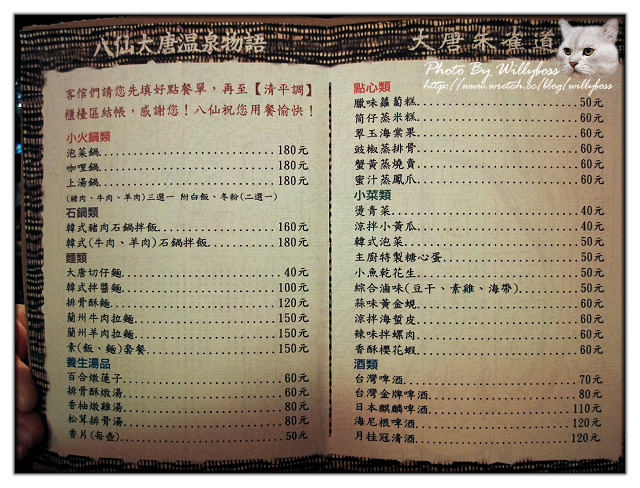 八仙大唐溫泉物語
客倌們請您先填好點餐單，再至【清平調】
櫃檯區結帳，感謝您！八仙祝您用餐愉快！
小火鍋類
泡菜鍋...180元
咖哩鍋...180元
上湯鍋...180元
(豬肉、牛肉、羊肉)三選一 附白飯、冬粉(二選一)
石鍋類
韓式豬肉石鍋拌飯...160元
韓式(牛肉、羊肉)石鍋拌飯...180元
麵類
大唐切仔麵...40元
韓式拌醬麵...100元
排骨酥麵...120元
蘭州牛肉拉麵...150元
蘭州羊肉拉麵...150元
素(飯、麵)套餐...150元
養生湯品
百合燉蓮子...60元
排骨酥燉湯...60元
香柚燉雞湯...80元
松茸排骨湯...80元
香片(每壺)...50元
大唐朱雀道
Photo By Willyboss
http://www.wretch.cc/blog/willyboss
點心類
臘味蘿蔔糕...50元
筒仔蒸米糕...60元
翠玉海棠果...60元
豉椒蒸排骨...60元
蟹黃蒸燒賣...60元
蜜汁蒸鳳爪...60元
小菜類
燙青菜...40元
涼拌小黃瓜...40元
韓式泡菜...50元
主廚特製糖心蛋...50元
小魚乾花生...50元
綜合滷味(豆干、素雞、海帶)...50元
蒜味黃金蜆...60元
涼拌海蜇皮...60元
辣味拌螺肉...60元
香酥櫻花蝦...60元
酒類
台灣啤酒...70元
台灣金牌啤酒...80元
日本麒麟啤酒...110元
海尼根啤酒...120元
月桂冠清酒...120元